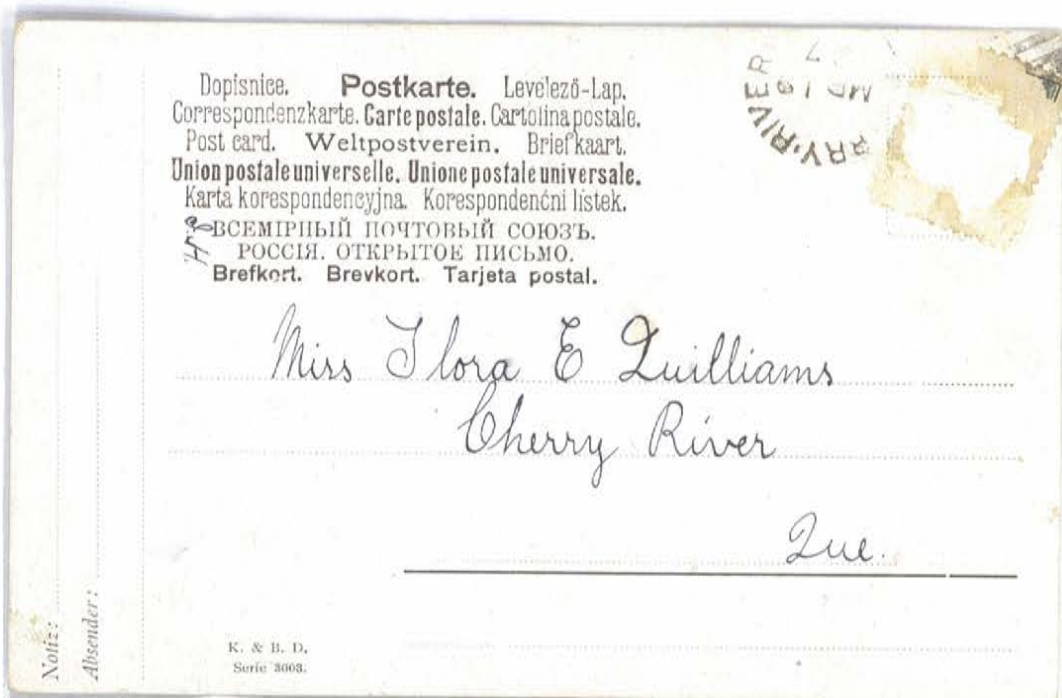 Dopisnice. Postkarte. Levelező-Lap.
Correspondenzkarte. Carte postale. Cartolina postale.
Post card. Weltpostverein. Briefkaart.
Union postale universelle. Unione postale universale.
Karta korespondencyjna. Korespondenční listek.
ВСЕМІРНЫЙ ПОЧТОВЫЙ СОЮЗЪ.
РОССІЯ. ОТКРЫТОЕ ПИСЬМО.
Brefkort. Brevkort. Tarjeta postal.
RY·RIVER
Miss Flora E Quilliams
Cherry River
Que.
Notiz:
Absender:
K. & B. D.
Serie 3003.